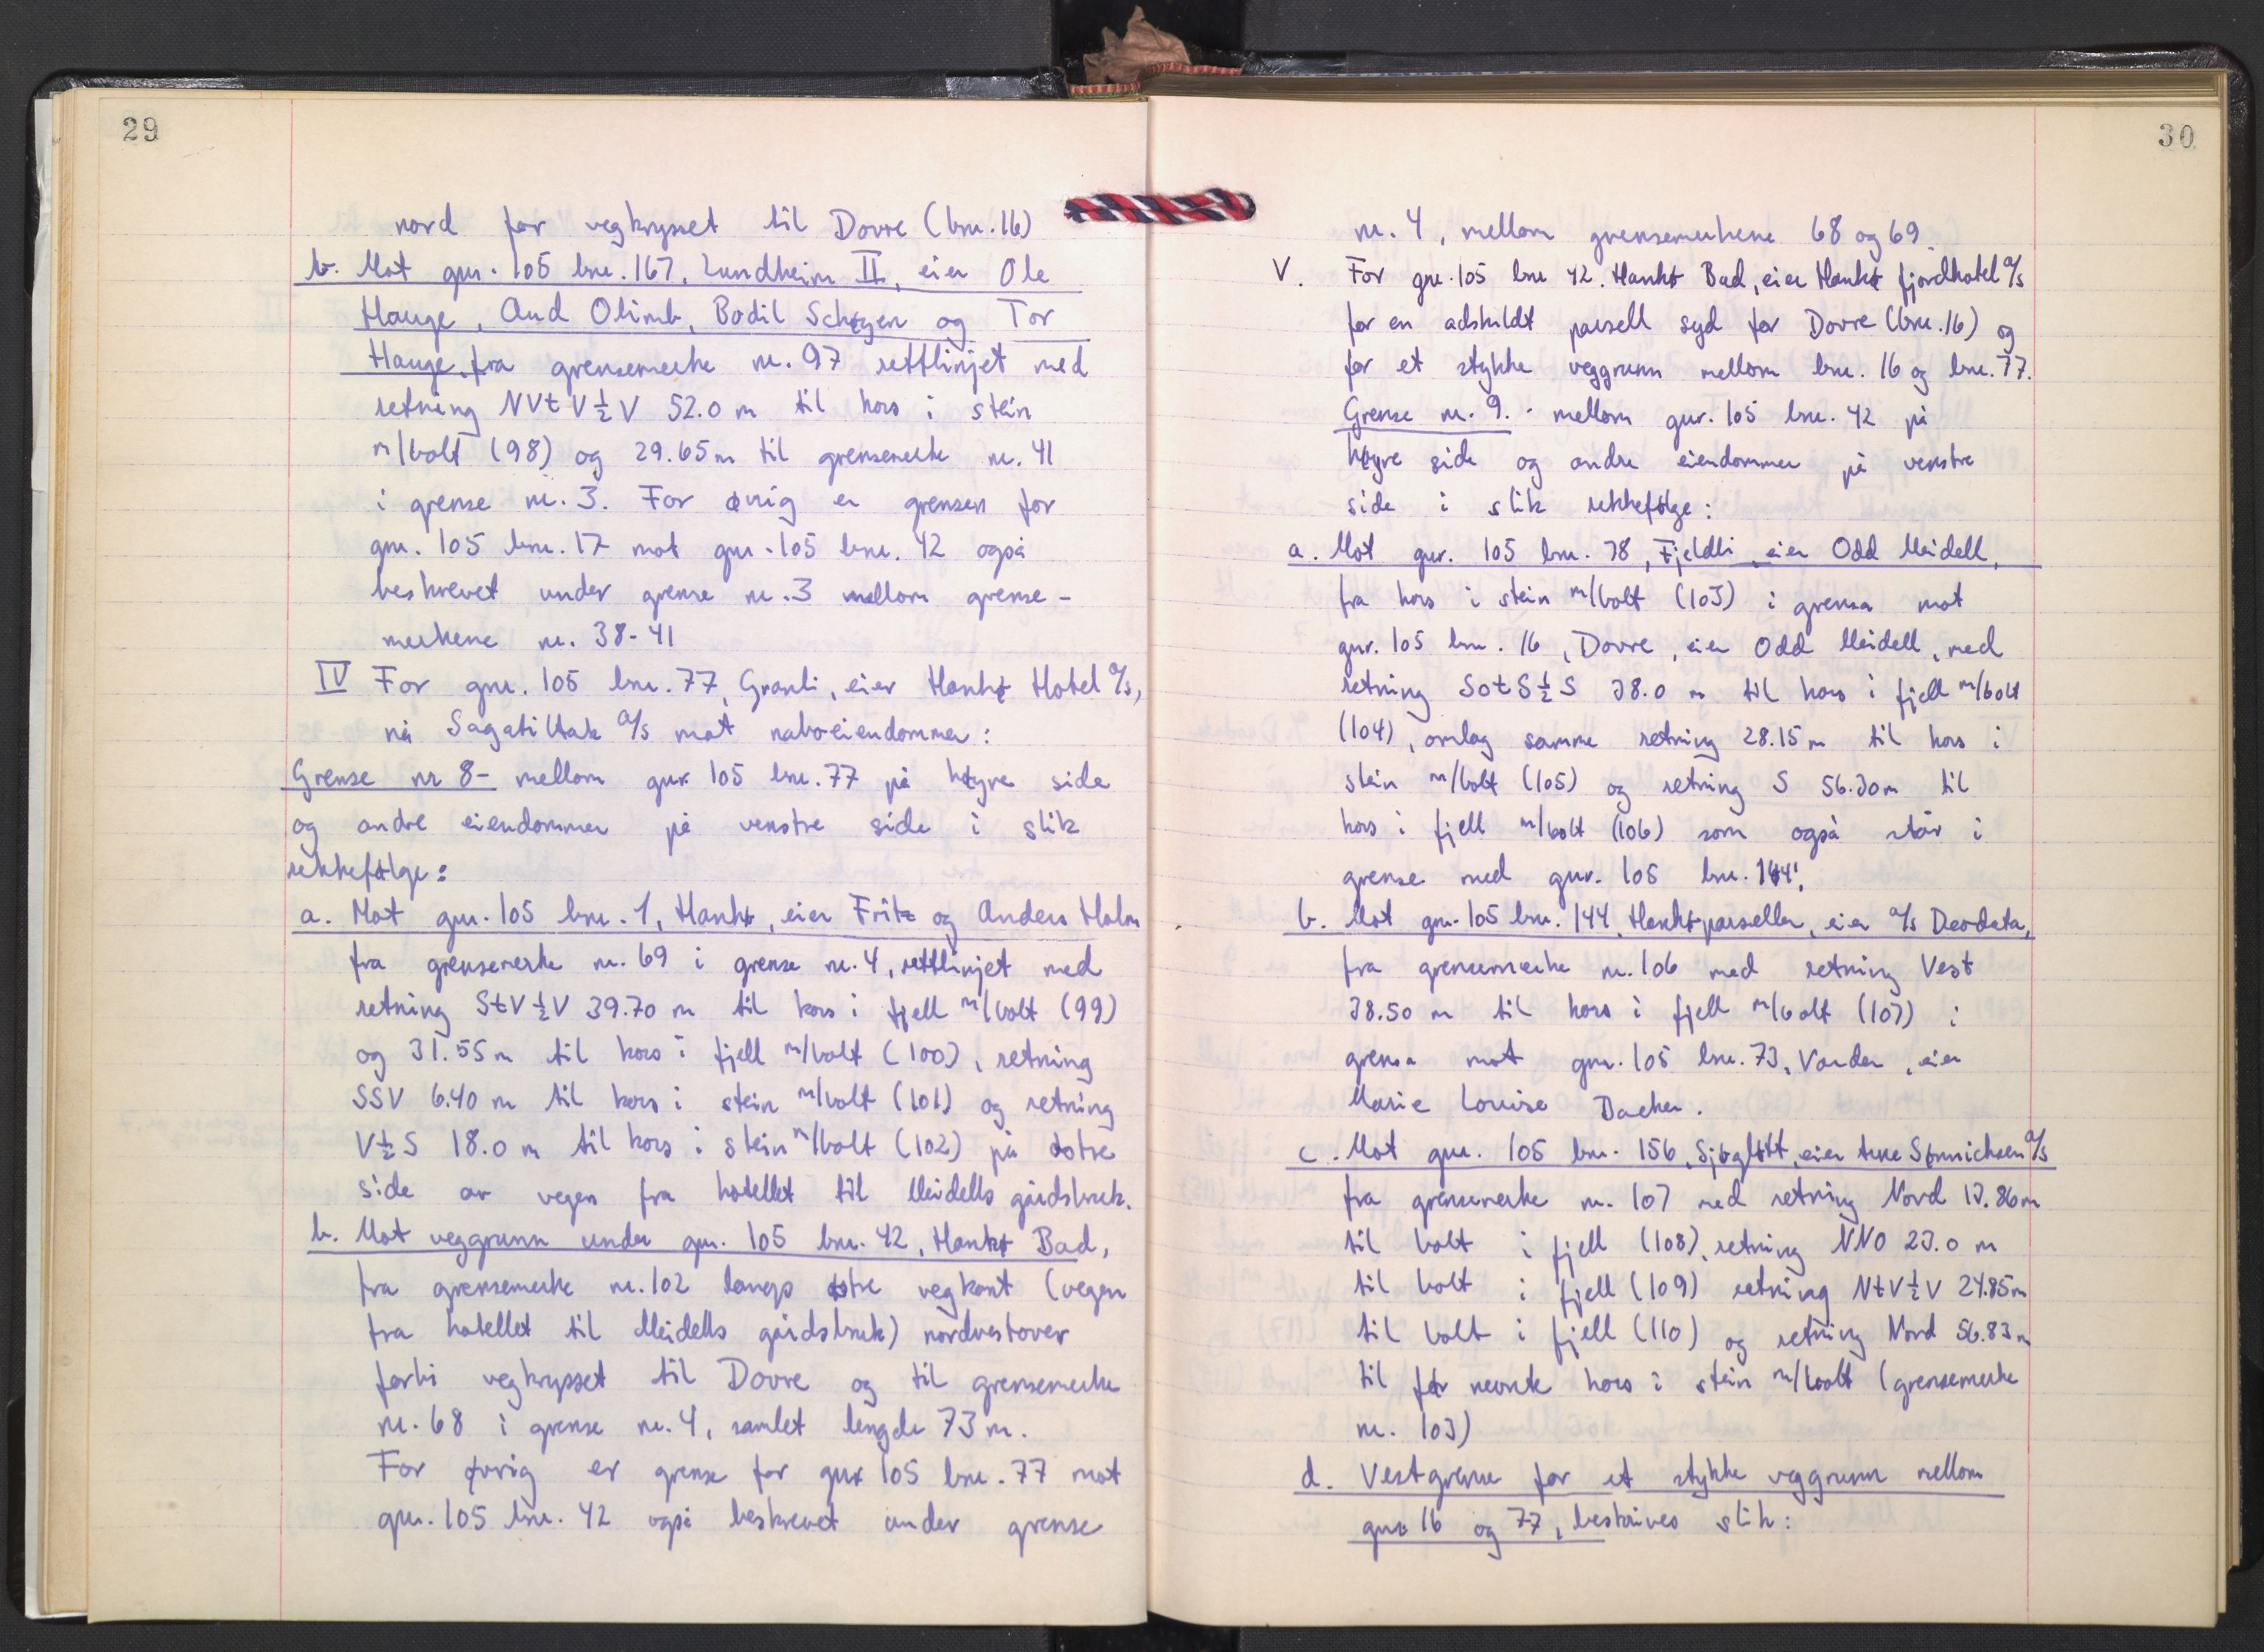 29
nord for vegkrysset til Dovre (bnr. 16)
b. Mot gnr. 105 bnr. 167, Lundheim II, eier Ole
Hauge, Aud Olimb, Bodil Schøyen og Tor
Hauge, fra grensemerke nr. 97 rettlinjet med
retning NVtV½V 52.0 m til kors i stein
m/bolt (98) og 29.65 m til grensemerke nr. 41
i grense nr. 3. For øvrig er grensen for
gnr. 105 bnr. 17 mot gnr. 105 bnr. 42 også
beskrevet under grense nr. 3 mellom grense-
merkene nr. 38-41
IV For gnr. 105 bnr. 77, Granli, eier Hankø Hotel a/s,
nå Sagatiltak a/s mot naboeiendommer:
Grense nr 8- mellom gnr 105 bnr. 77 på høyre side
og andre eiendommer på venstre side i slik
rekkefølge:
a. Mot gnr. 105 bnr. 1, Hankø, eier Fritz og Anders Holm
fra grensemerke nr. 69 i grense nr. 4, rettlinjet med
retning StV½V 39.70 m til kors i fjell m/bolt (99)
og 31.55 m til kors i fjell m/bolt (100), retning
SSV 6.40 m til kors i stein m/bolt (101) og retning
V½S 18.0 m til kors i stein m/bolt (102) på østre
side av vegen fra hotellet til Meidells gårdsbruk.
b. Mot veggrunn under gnr. 105 bnr. 42, Hankø Bad,
fra grensemerke nr. 102 langs østre vegkant (vegen
fra hotellet til Meidells gårdsbruk) nordvestover
forbi vegkrysset til Dovre og til grensemerke
nr. 68 i grense nr. 4, samlet lengde 73 m.
For øvrig er grense for gnr 105 bnr. 77 mot
gnr. 105 bnr. 42 også beskrevet under grense
30
nr. 4, mellom grensemerkene 68 og 69.
V. For gnr. 105 bnr 42. Hankø Bad, eier Hankø fjordhotel a/s
for en adskildt parsell syd for Dovre (bnr. 16) og
for et stykke veggrunn mellom bnr. 16 og bnr. 77.
Grense nr. 9. - mellom gnr. 105 bnr. 42 på
høyre side og andre eiendommer på venstre
side i slik rekkefølge:
a. Mot gnr. 105 bnr. 38, Fjeldli, eier Odd Meidell,
fra kors i stein m/bolt (103) i grensa mot
gnr. 105 bnr. 16, Dovre, eier Odd Meidell, med
retning SOtS½S 38.0 m til kors i fjell m/bolt
(104), omlag samme retning 28.15 m til kors i
stein m/bolt (105) og retning S 56.30 m til
kors i fjell m/bolt (106) som også står i
grense med gnr. 105 bnr. 144.
b. Mot gnr. 105 bnr. 144, Hankø parseller, eier a/s Deodata,
fra grensemerke nr. 106 med retning Vest
38.50 m til kors i fjell m/bolt (107) i
grensa mot gnr. 105 bnr. 73, Varden, eier
Marie Louise Dacher.
c. Mot gnr. 105 bnr. 156, Sjøgløtt, eier Arne Sønnichsen a/s
fra grensemerke nr. 107 med retning Nord 13.86 m
til bolt i fjell (108), retning NNO 23.0 m
til bolt i fjell (109) retning NtV½V 24.85 m
til bolt i fjell (110) og retning Nord 56.83 m
til før nevnte kors i stein m/bolt (grensemerke
nr. 103)
d. Vestgrense for et stykke veggrunn mellom
gnr 16 og 77, beskrives slik: